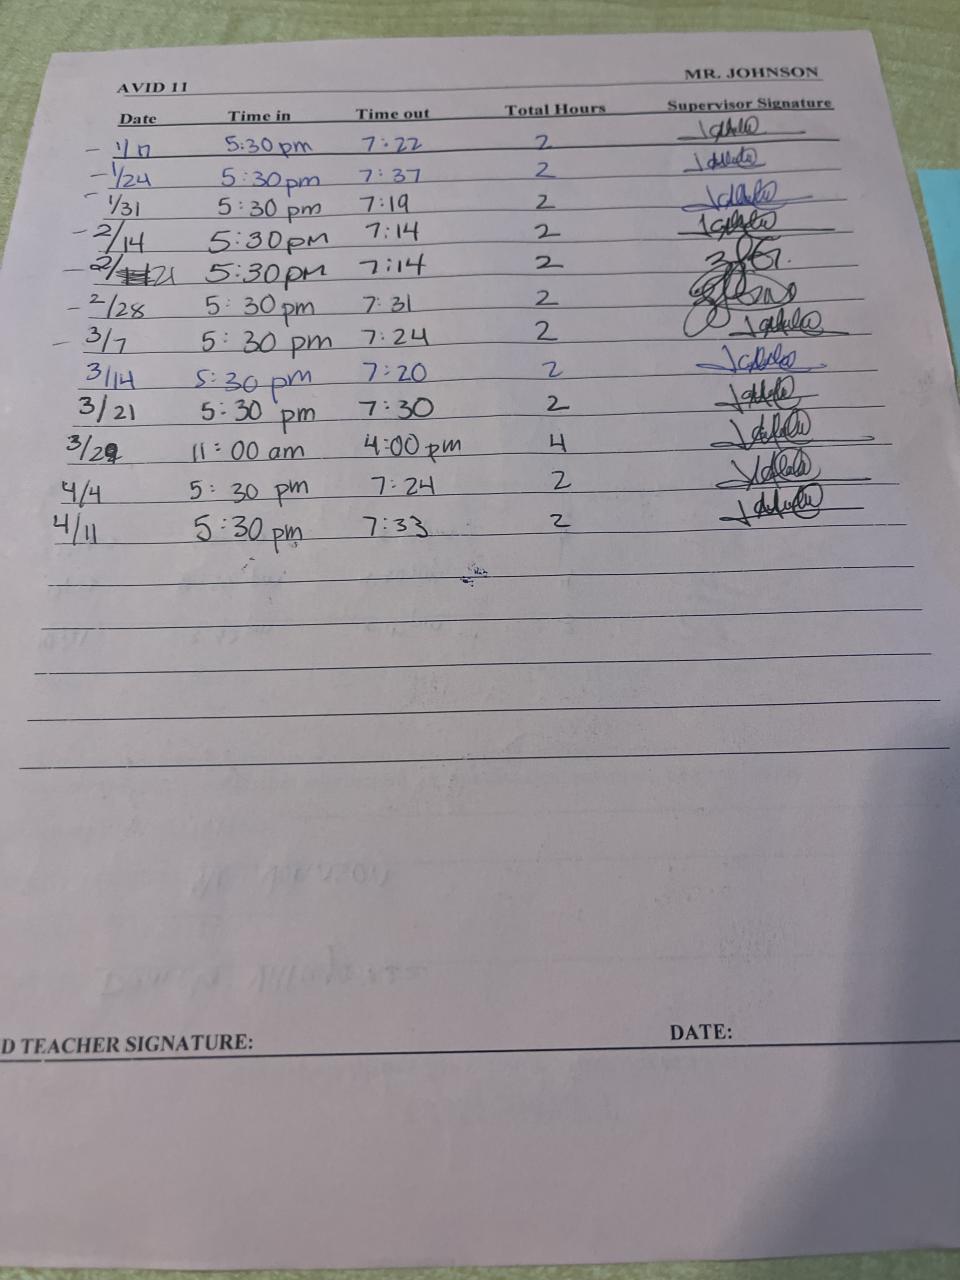 AVID 11 MR. JOHNSON
Date Time in Time out Total Hours Supervisor Signature
- 1/17 5:30 pm 7:22 2
- 1/24 5:30 pm 7:37 2
- 1/31 5:30 pm 7:19 2
- 2/14 5:30 pm 7:14 2
- 2/21 5:30 pm 7:14 2
- 2/28 5:30 pm 7:31 2
- 3/7 5:30 pm 7:24 2
3/14 5:30 pm 7:20 2
3/21 5:30 pm 7:30 2
3/29 11:00 am 4:00 pm 4
4/4 5:30 pm 7:24 2
4/11 5:30 pm 7:33 2
D TEACHER SIGNATURE: DATE: